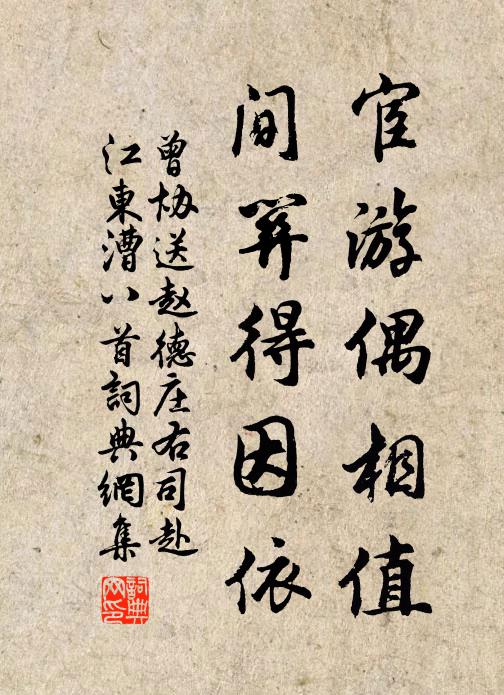 宦游偶相值
間關得因依
曾协送赵德庄右司赴
江東漕八首詞典網集